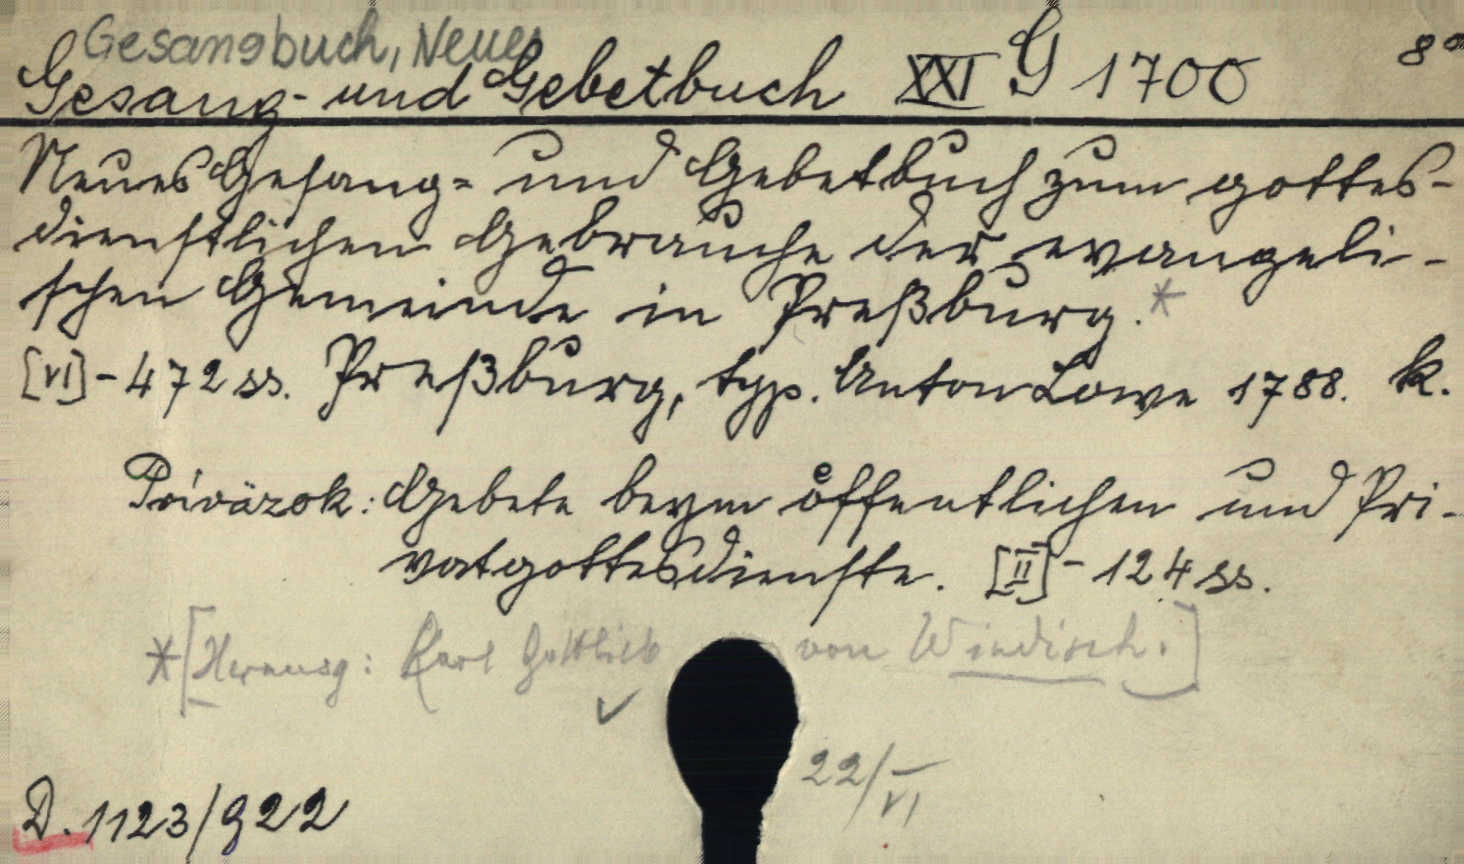 Gesangbuch, Neues
Gesang- und Gebetbuch XXI G 1700 8°
Neues Gesang= und Gebetbuch zum gottes-
dienstlichen Gebrauche der evangeli-
schen Gemeinde in Preßburg.*
[VI]-472 ss. Preßburg, typ. Anton Löwe 1788. k.
Priväzok: Gebete beym öffentlichen und Pri-
vatgottesdienste. [II]-124 ss.
*[Herausg: Karl Gottlieb von Windisch.]
22/VI
D. 1123/922